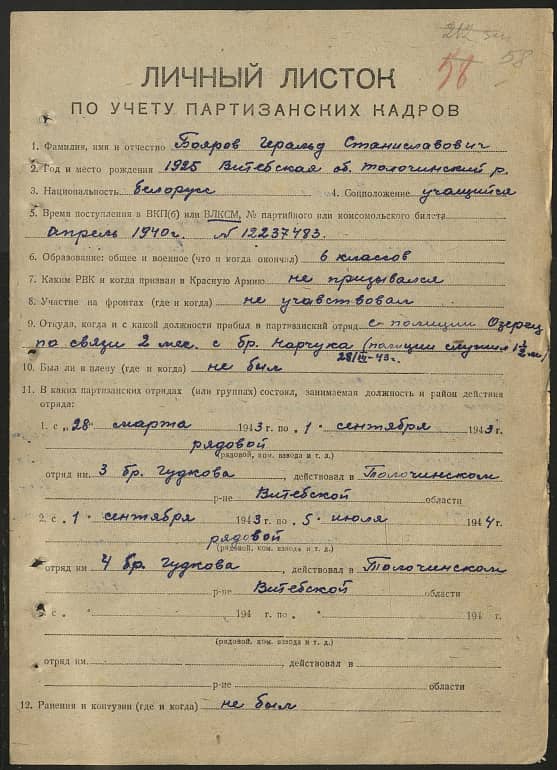 58
58
ЛИЧНЫЙ ЛИСТОК
ПО УЧЕТУ ПАРТИЗАНСКИХ КАДРОВ
1. Фамилия, имя и отчество Бояров Геральд Станиславович
2. Год и место рождения 1925 Витебская об. Толочинский р.
3. Национальность белорусс 4. Соцположение учащийся
5. Время поступления в ВКП(б) или ВЛКСМ, № партийного или комсомольского билета
апрель 1940г. № 12237483.
6. Образование: общее и военное (что и когда окончил) 6 классов
7. Каким РВК и когда призван в Красную Армию не призывался
8. Участие на фронтах (где и когда) не учавствовал
9. Откуда, когда и с какой должности прибыл в партизанский отряд с полиции Озерец
по связи 2 мес. с бр. Нарчука (полиции служил 1½ м)
28/III-43г.
10. Был ли в плену (где и когда) не был
11. В каких партизанских отрядах (или группах) состоял, занимаемая должность и район действия
отряда:
1. с „28" марта 1943 г. по „1" сентября 1943 г.
рядовой
(рядовой, ком. взвода и т. д.)
отряд им 3 бр. Гудкова, действовал в Толочинском
р-не Витебской области
2. с „1" сентября 1943 г. по „5" июля 1944 г.
рядовой
(рядовой, ком. взвода и т. д.)
отряд им 4 бр. Гудкова, действовал в Толочинском
р-не Витебской области
3 с „ " 194 г. по „ " 194 г.
(рядовой, ком. взвода и т. д.)
отряд им. , действовал в
р-не области
12. Ранения и контузии (где и когда) не был